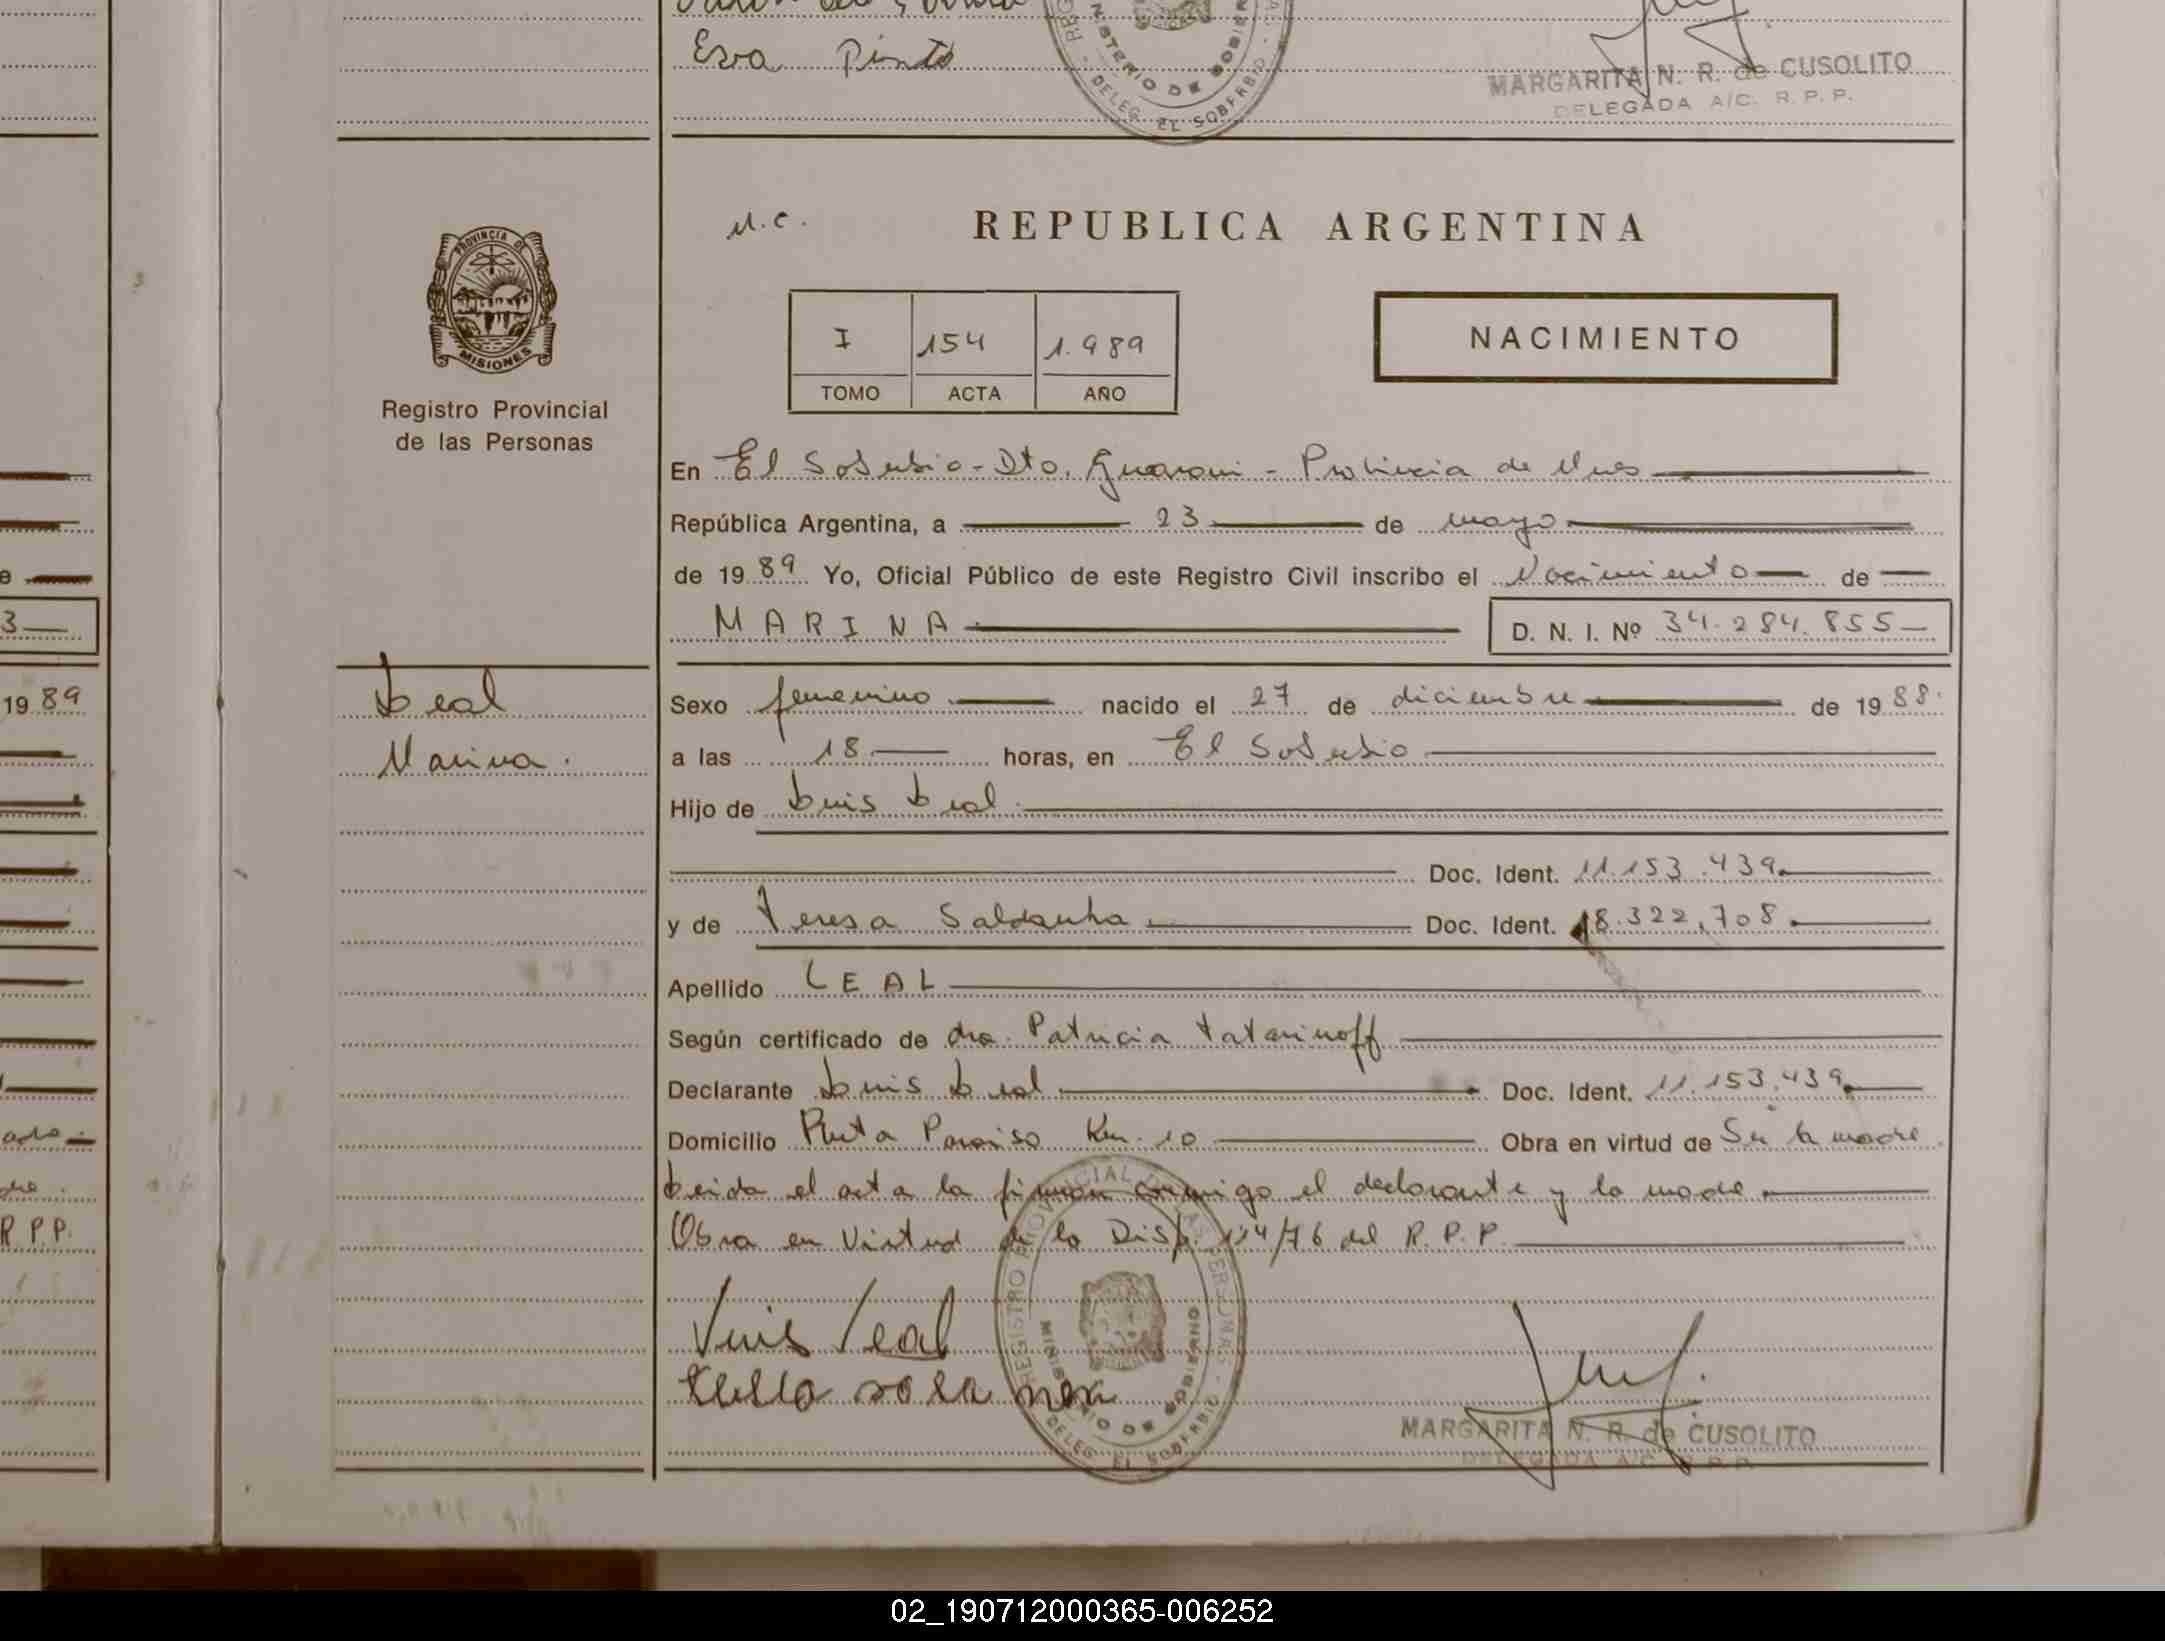 Eva Pinto
MARGARITA N. R. de CUSOLITO
DELEGADA A/C. R. P. P.
MINISTERIO DE GOBIERNO
DELEG. EL SOBERBIO
PROVINCIA DE
MISIONES
Registro Provincial
de las Personas
REPUBLICA ARGENTINA
I 154 1.989
TOMO ACTA AÑO
NACIMIENTO
En El Soberbio - Dto. Guarani - Provincia de Mnes
República Argentina, a 23 de mayo
de 1989 Yo, Oficial Público de este Registro Civil inscribo el Nacimiento de
MARINA D. N. I. Nº 34.284.855
Leal
Marina.
Sexo femenino nacido el 27 de diciembre de 1988.
a las 18 horas, en El Soberbio
Hijo de Luis Leal
Doc. Ident. 11.153.439
y de Teresa Saldanha Doc. Ident. 18.322.708
Apellido LEAL
Según certificado de dra. Patricia Tatarinoff
Declarante Luis Leal Doc. Ident. 11.153.439
Domicilio Pnta Paraiso Km. 10 Obra en virtud de Ser la madre
Leida el acta la firman conmigo el declarante y la madre
Obra en Virtud de la Disp. 114/76 del R. P. P.
Luis Leal
REGISTRO PROVINCIAL DE LAS PERSONAS
MINISTERIO DE GOBIERNO
DELEG. EL SOBERBIO
MARGARITA N. R. de CUSOLITO
DELEGADA A/C R. P. P.
3
1989
R P.P.
02_190712000365-006252